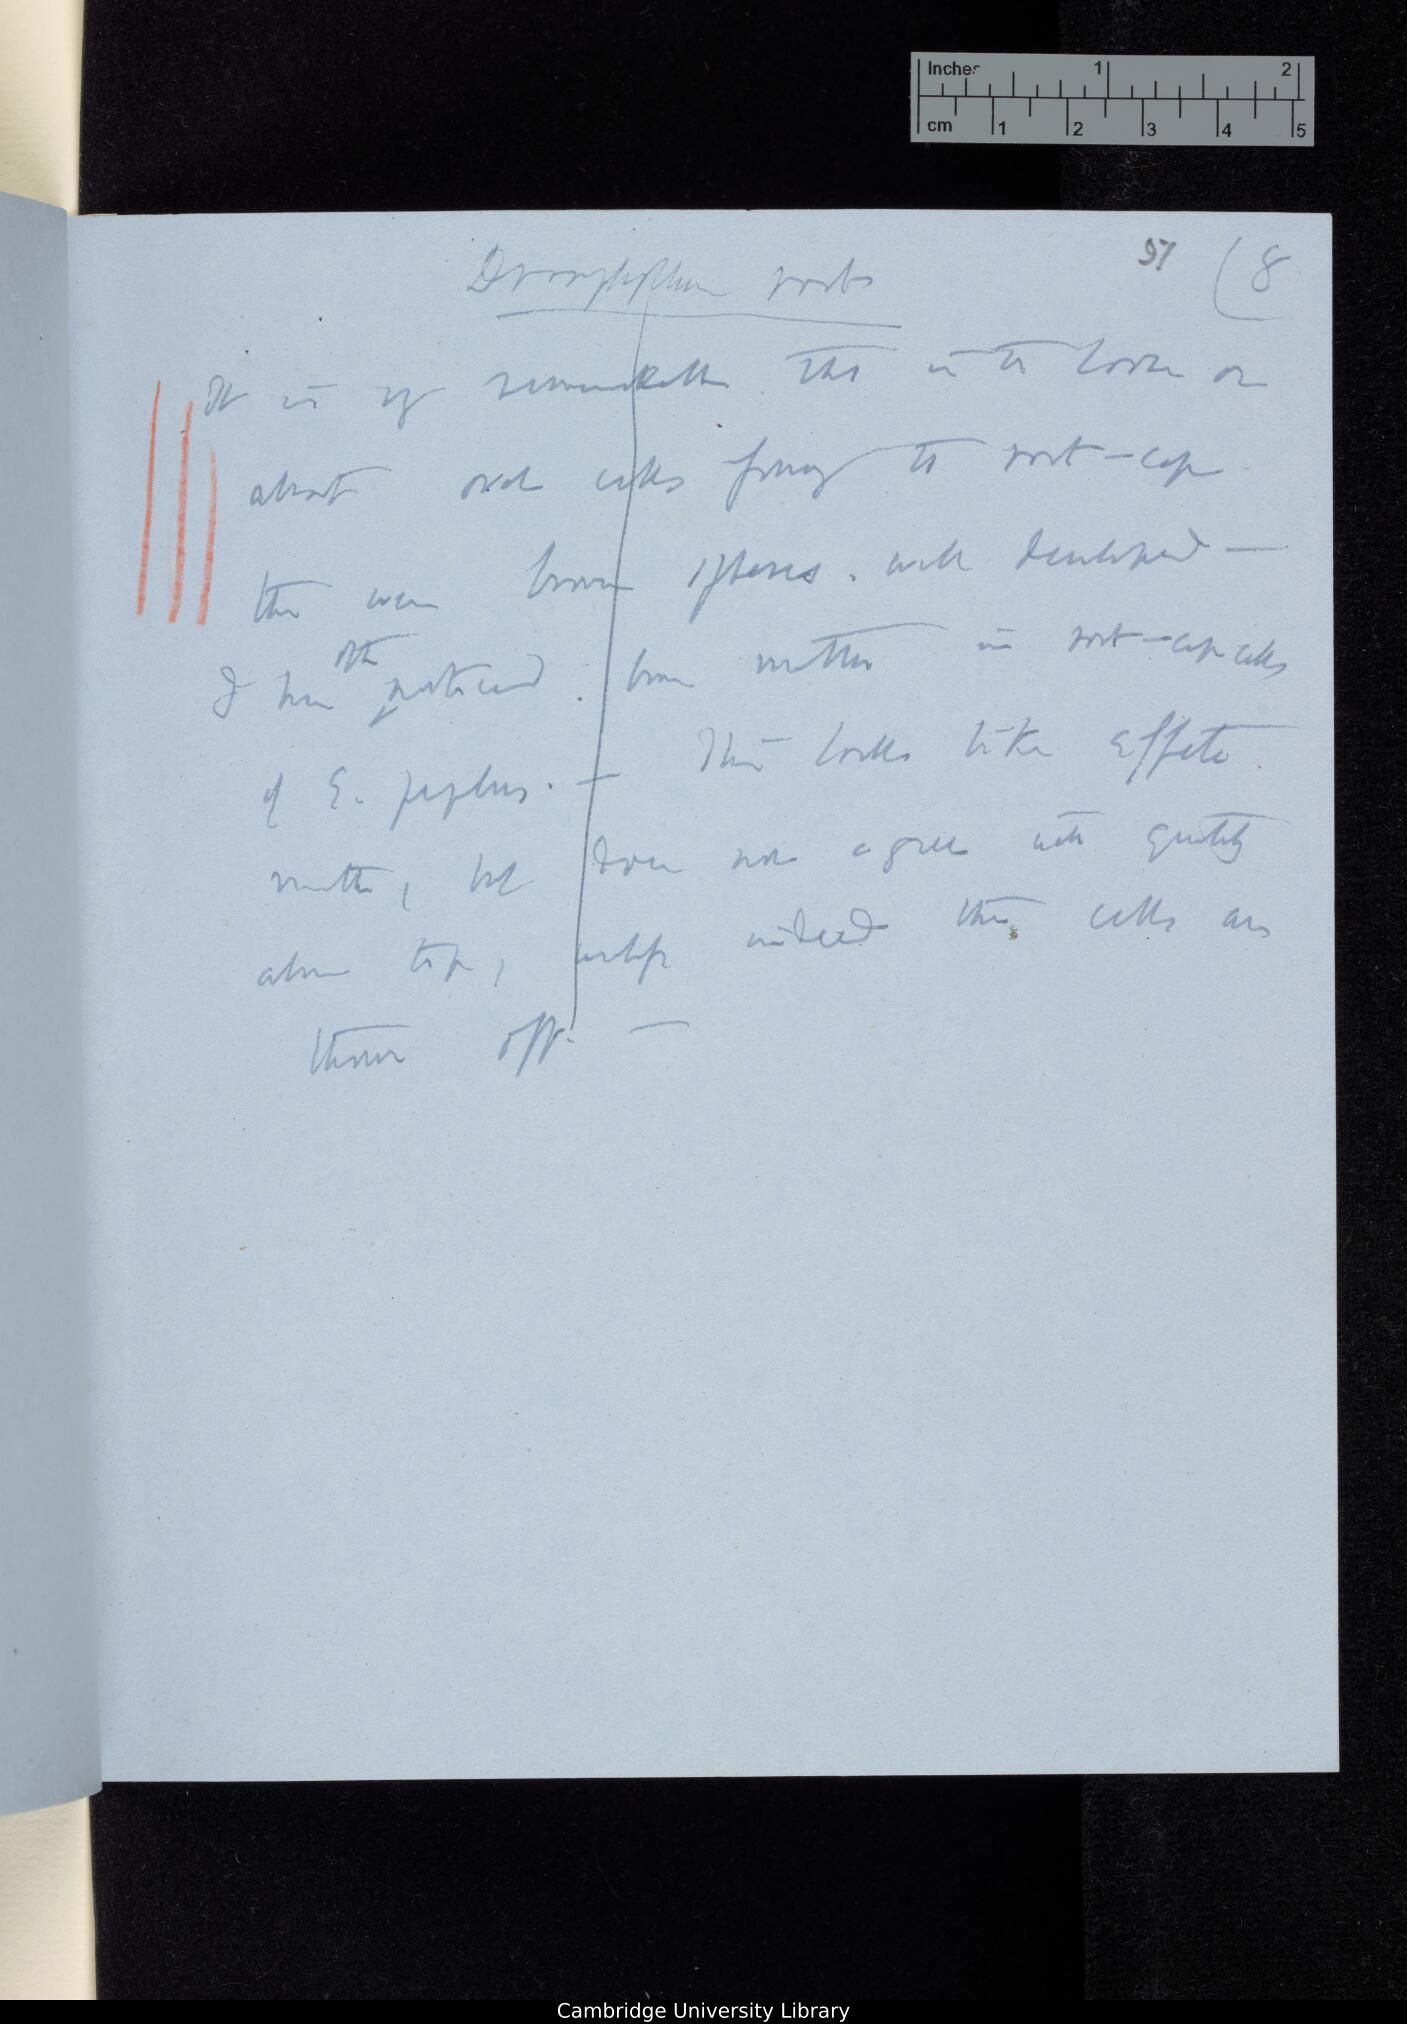 Inches 1 2
cm 1 2 3 4 5
57 (8
Drosophyllum roots
It is very remarkable that in the loose or
almost oval cells forming the root-cap
there were brown spheres well developed —
I have often noticed brown matter in root-cap cells
of E. peplus. — This looks like effete
matter, but does not agree with quantity
above tip, unless indeed these cells are
thrown off. —
Cambridge University Library